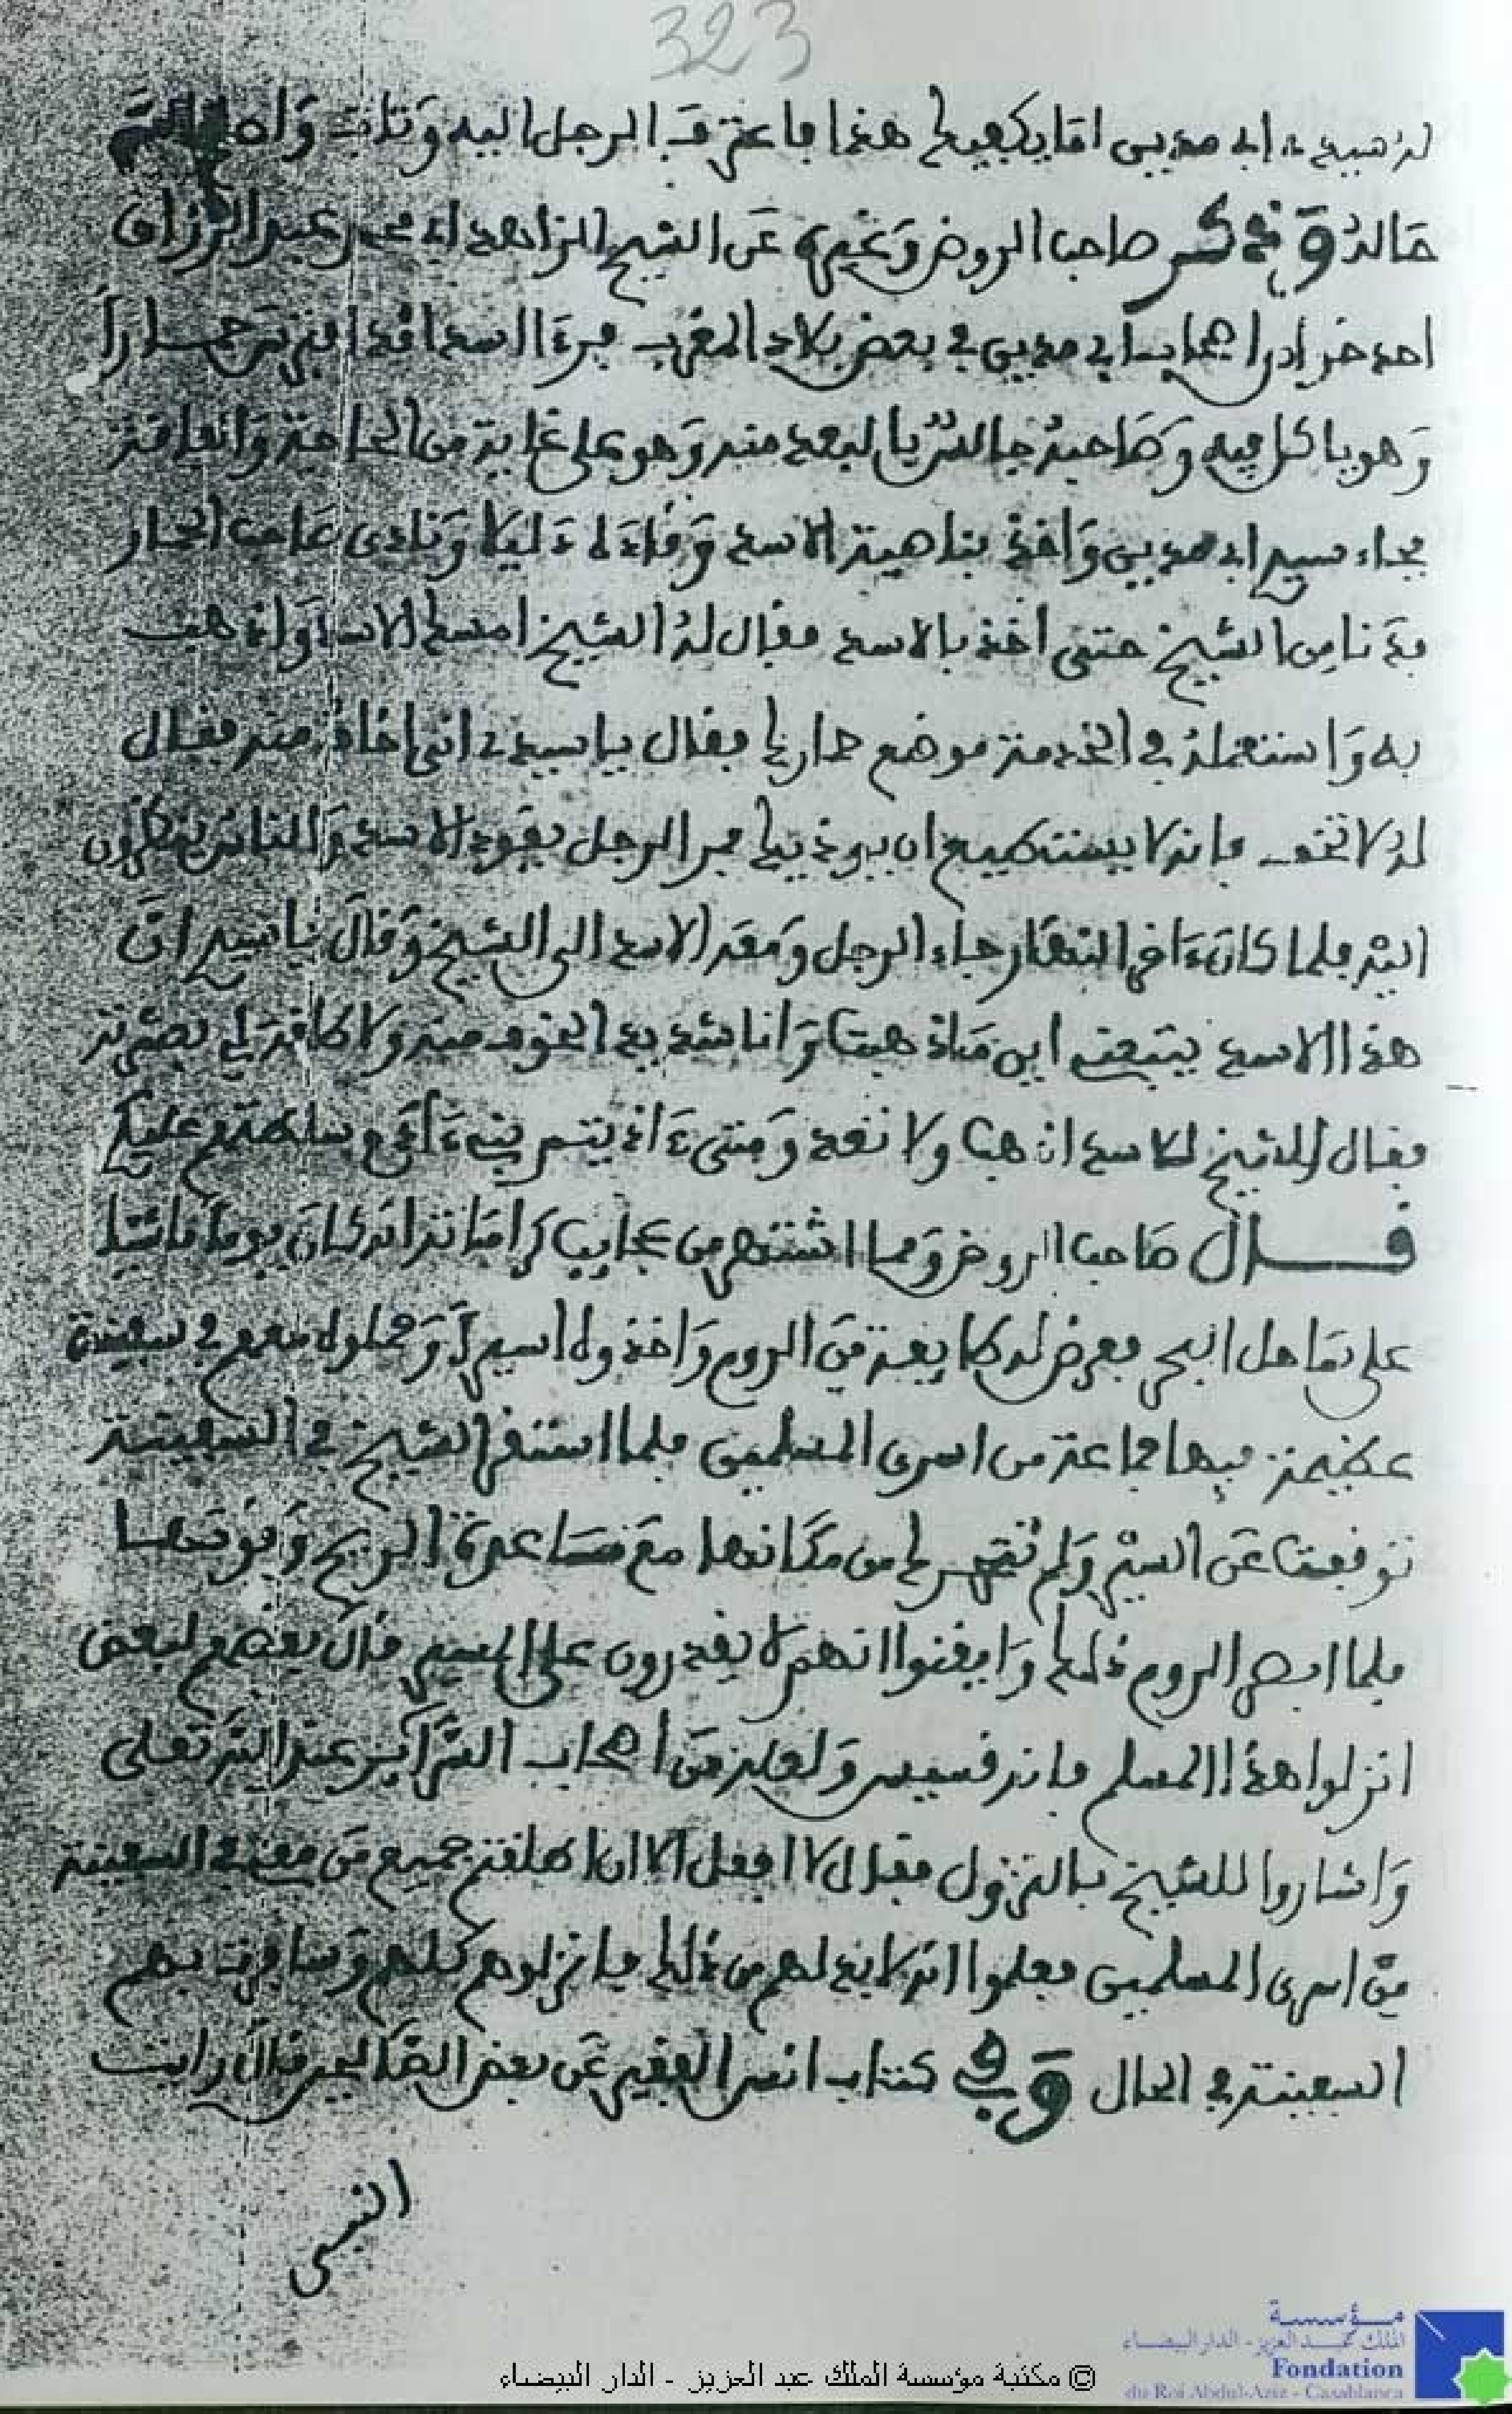 323
له سيدي ابى مدين اما يكفيك هذا فاعترف الرجل اليه وتاب واصلح الله
حاله وذكر صاحب الروض وغيره عن الشيخ الزاهد ابي محمد عبد الرزاق
احد خواص اصحاب ابي مدين في بعض بلاد المغرب فرءا اسدا قد افترس حمارا
وهو ياكل فيه وصاحبه جالس بالبعد منه وهو على غاية من الحاجة والفاقة
فجاء سيدي ابى مدين واخذ بناصية الاسد وقاده ذليلا ونادى صاحب الحمار
فدنا من الشيخ حتى اخذ بالاسد فقال له الشيخ امسك الاسد واذهب
به واستعمله في الخدمة موضع حمارك فقال يا سيدي اني اخاف منه فقال
له لا تخف فانه لا يستطيع ان يوذيك فمر الرجل يقود الاسد والناس ينظرون
اليه فلما كان ءاخر النهار جاء الرجل ومعه الاسد الى الشيخ وقال يا سيدي ان
هذا الاسد يتبعني اين ما ذهبت وانا شديد الخوف منه ولا طاقة لي بعشرته
فقال الشيخ للاسد اذهب ولا تعد ومتى ءاذيتم بني ءادم سلطتهم عليكم
قال صاحب الروض ومما اشتهر من عجايب كراماته انه كان يوما ماشيا
على ساحل البحر فعرض له طايفة من الروم واخذوه اسيرا وحملوه معهم في سفينة
عظيمة فيها جماعة من اسرى المسلمين فلما استقر الشيخ في السفينة
توقفت عن السير ولم تتحرك من مكانها مع مساعدة الريح وقوتها
فلما ابصر الروم ذلك وايقنوا انهم لا يقدرون على المسير قال بعضهم لبعض
انزلوا هذا المسلم فانه قسيس ولعله من اصحاب السراير عند الله تعلى
واشاروا للشيخ بالنزول فقال لا افعل الا ان اطلقتم جميع من معي في السفينة
من اسرى المسلمين فعلموا انه لا بد لهم من ذلك فانزلوهم كلهم وسارت بهم
السفينة في الحال وفي كتاب انس الفقير عن بعض الصالحين قال رايت
النبي
© مكتبة مؤسسة الملك عبد العزيز - الدار البيضاء
مؤسسة
الملك عبد العزيز - الدار البيضاء
Fondation
du Roi Abdul-Aziz - Casablanca